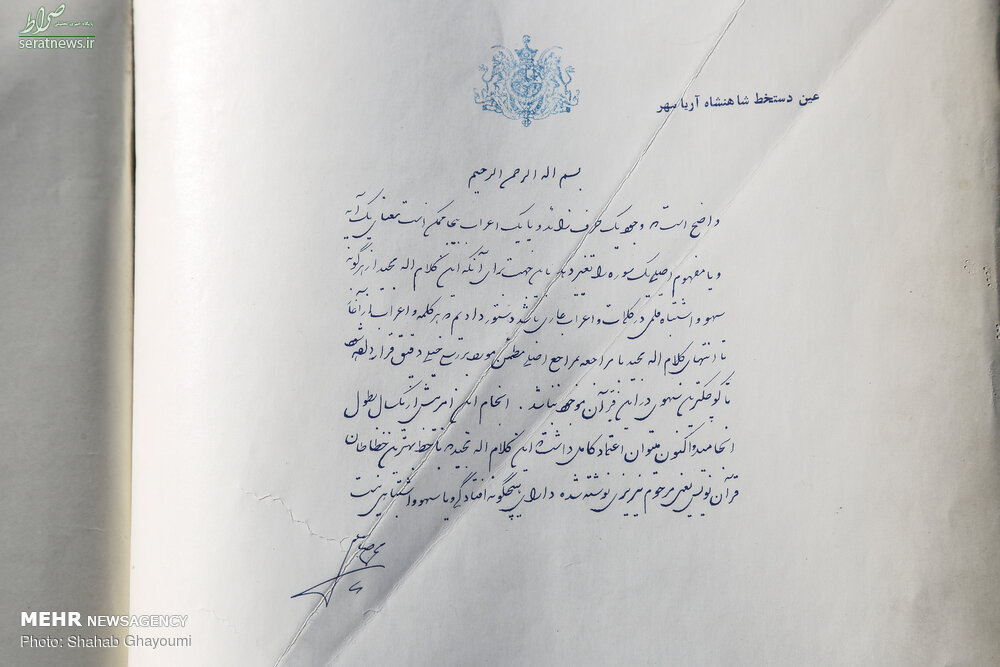 صراط
پایگاه خبری تحلیلی
seratnews.ir
عین دستخط شاهنشاه آریامهر
بسم اله الرحمن الرحیم
واضح است که وجود یک حرف زائد و یا یک اعراب بیجا ممکن است معنای یک آیه
و یا مفهوم اصلی یک سوره را تغییر دهد باین جهت برای آنکه این کلام اله مجید از هرگونه
سهو و اشتباه قلمی در کلمات و اعراب عاری باشد دستور دادیم که هر کلمه و اعراب از آغاز
تا انتهای کلام اله مجید با مراجعه بمراجع اصلی مطمئن مورد بررسی خیلی دقیق قرار داده شود
تا کوچکترین سهوی در این قرآن موجود نباشد . انجام این امر بیش از یکسال بطول
انجامید و اکنون میتوان اعتماد کامل داشت که این کلام اله مجید که با خط بهترین خطاطان
قرآن نویس یعنی مرحوم نیریزی نوشته شده دارای هیچگونه افتادگی و یا سهو و اشتباهی نیست
MEHR NEWSAGENCY
Photo: Shahab Ghayoumi